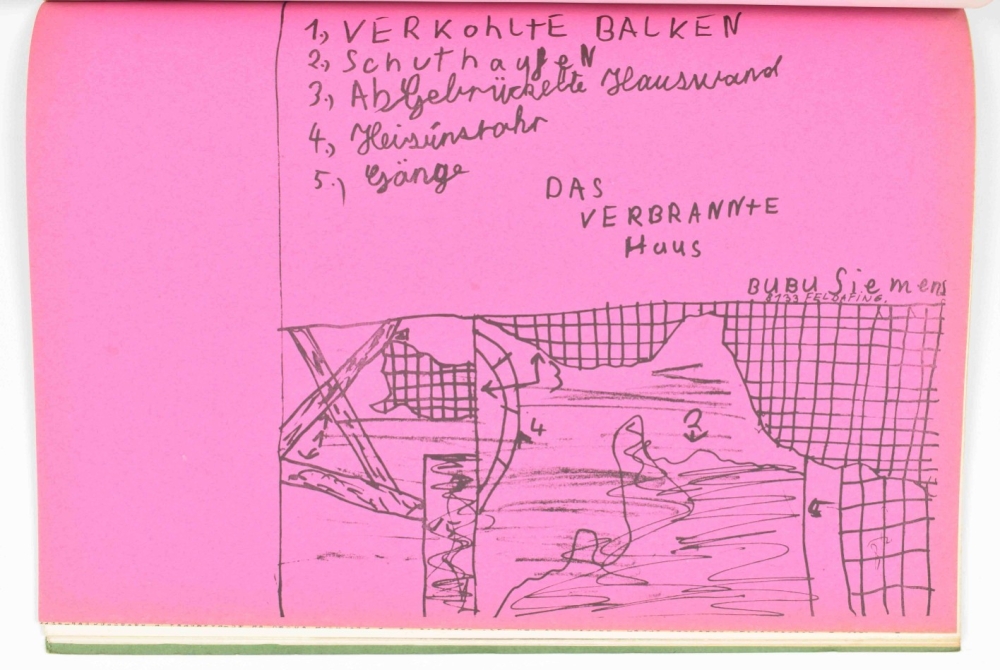 1., VERKohltE BALKEN
2., SchuthaufeN
3., AbGebrückelte Hauswand
4., Heisünstohr
5., Gänge
DAS
VERBRANNtE
Haus
BUBU Siemens
8133 FELDAFING.
1
3
4
2